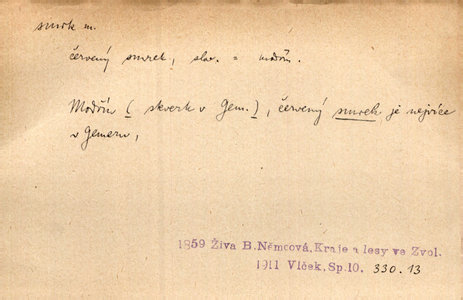 smrk m.
červený smrek, slov. = modřín.
Modřín ( skverk v Gem. ), červený smrek je nejvíce
v Gemeru,
1859 Živa B. Němcová, Kraje a lesy ve Zvol.
1911 Vlček, Sp. 10. 330.13